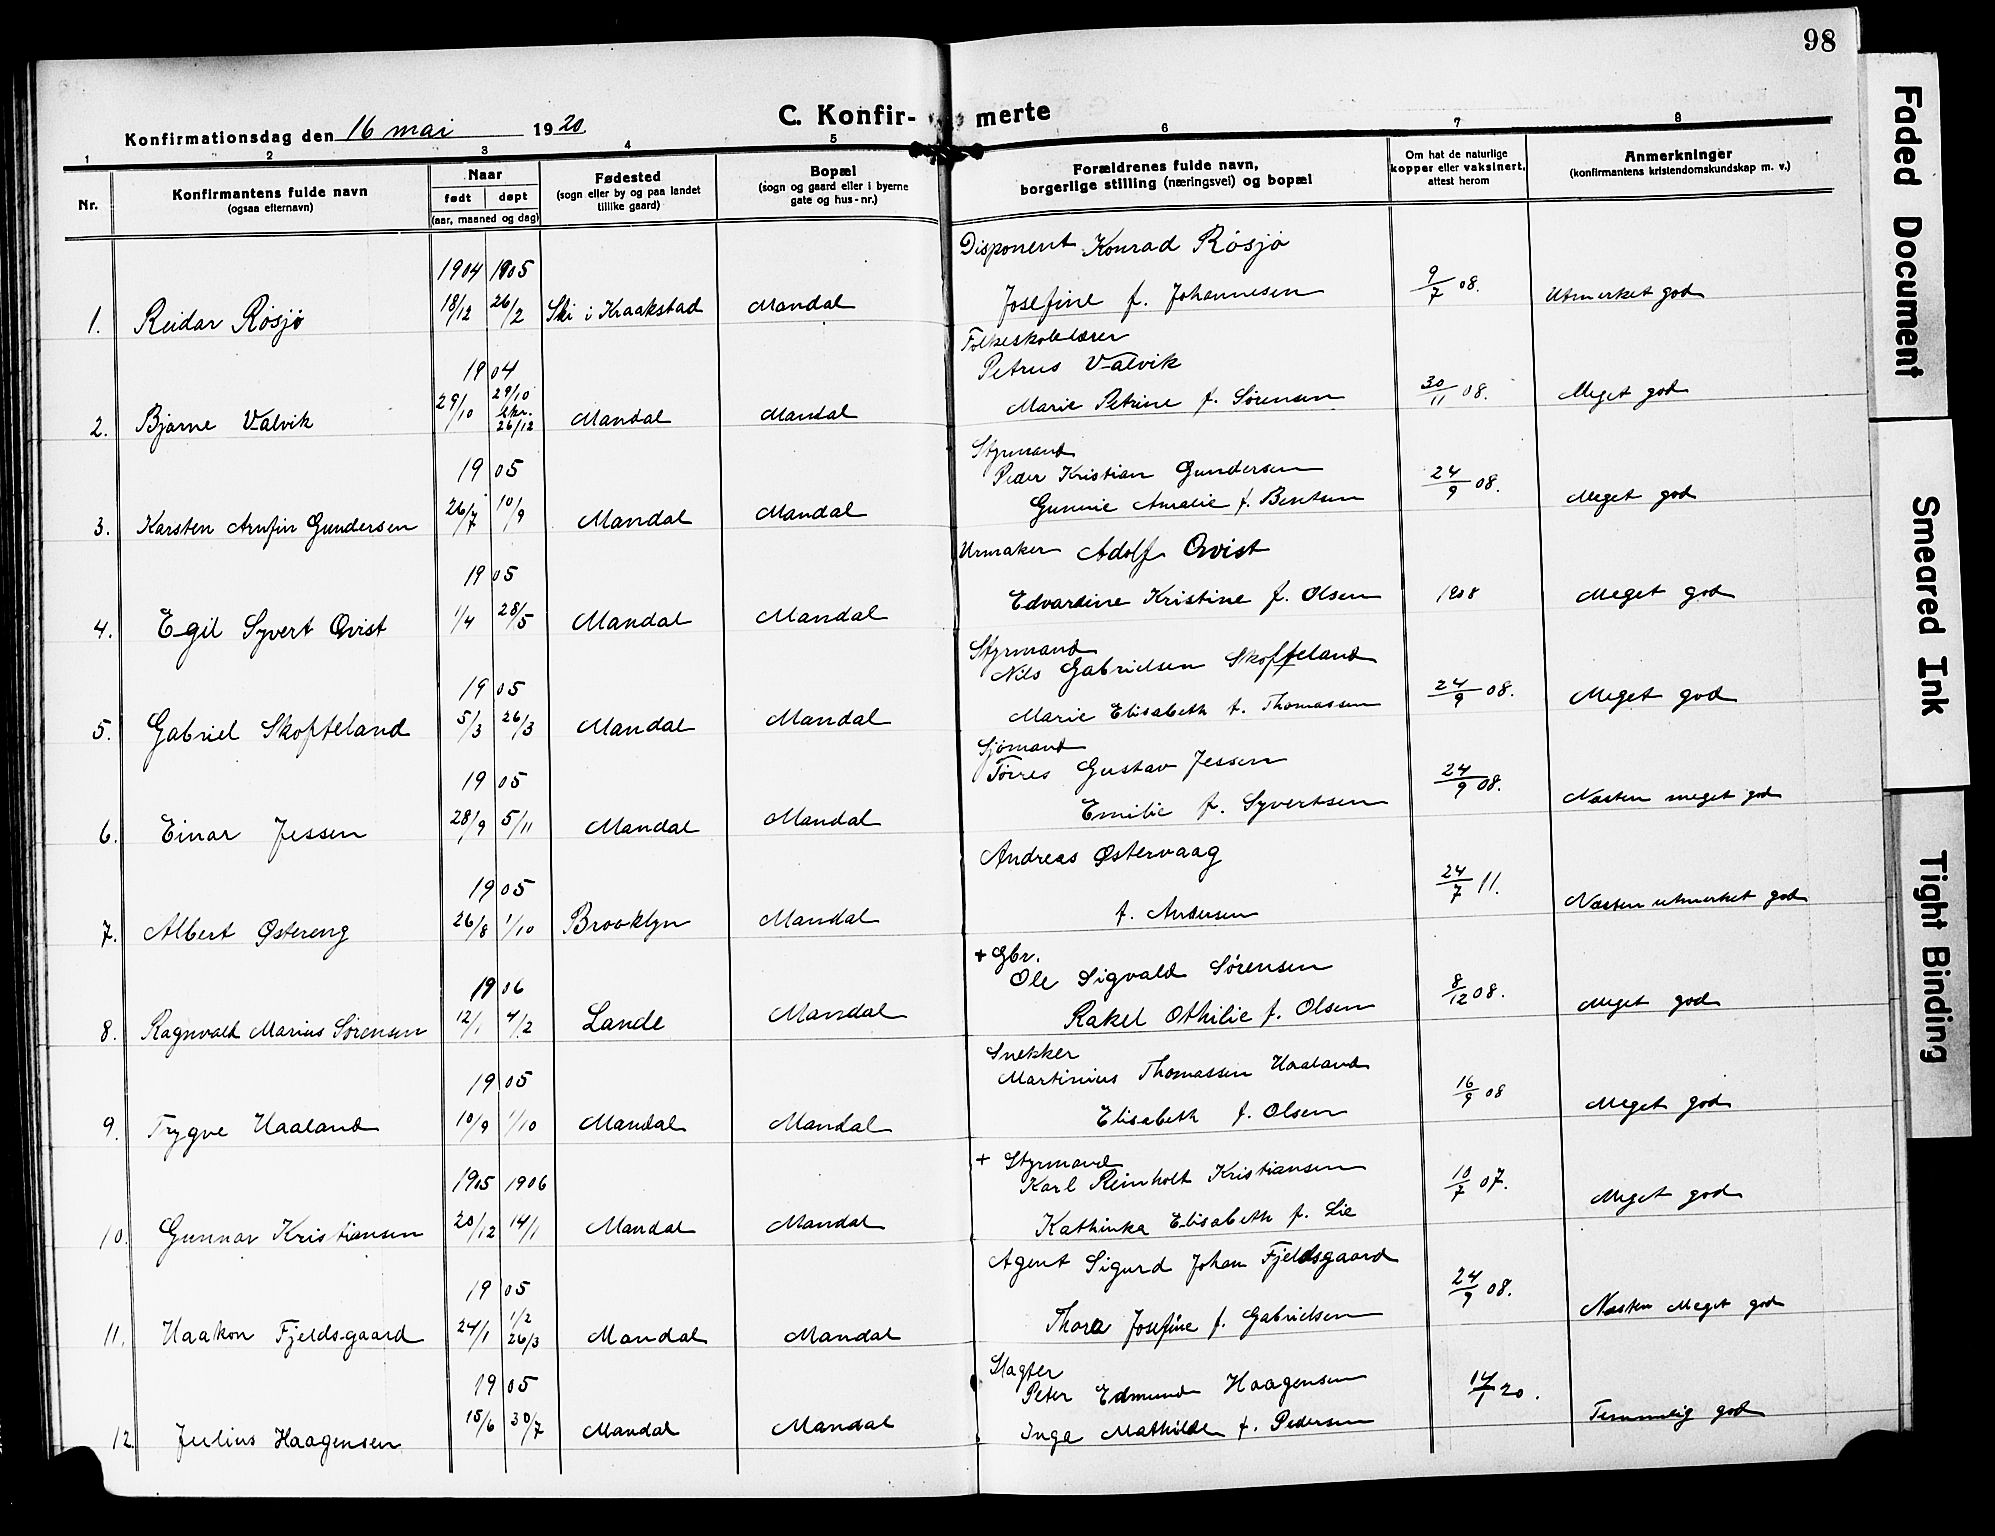 98
C. Konfirmerte
Konfirmationsdag den 16 mai 1920
1 2 3 4 5 6 7 8
Nr.
Konfirmantens fulde navn
(ogsaa efternavn)
Naar
født døpt
(aar, maaned og dag)
Fødested
(sogn eller by og paa landet
tillike gaard)
Bopæl
(sogn og gaard eller i byerne
gate og hus-nr.)
Forældrenes fulde navn,
borgerlige stilling (næringsvei) og bopæl
Om hat de naturlige
kopper eller vaksinert,
attest herom
Anmerkninger
(konfirmantens kristendomskundskap m. v.)
Disponent Konrad Rösjö
1904 1905
1. Reidar Rösjö 18/12 26/2 Ski i Kraakstad Mandal Josefine f. Johannesen 9/7 08. Utmerket god
Folkeskolelærer
1904 Petrus Valvik
29/10
2. Bjarne Valvik 29/10 Mandal Mandal Marie Petrine f. Sörensen 30/11 08. Meget god
Skr.
26/12
Styrmand
1905 Peder Kristian Gundersen
3. Karsten Arnfin Gundersen 26/7 10/9 Mandal Mandal Gunnie Amalie f. Bentsen 24/9 08. Meget god
1905 Urmaker Adolf Qvist
4. Egil Syvert Qvist 1/4 28/5 Mandal Mandal Edvardine Kristine f. Olsen 1908 Meget god
Styrmand
1905 Nils Gabrielsen Skofteland
5. Gabriel Skofteland 5/3 26/3 Mandal Mandal Marie Elisabeth f. Thomassen 24/9 08. Meget god
Sjömand
1905 Törres Gustav Jessen
6. Einar Jessen 28/9 5/11 Mandal Mandal Emilie f. Syvertsen 24/9 08. Næsten meget god
1905 Andreas Østervaag
7. Albert Østereng 26/8 1/10 Brooklyn Mandal f. Andersen 24/7 11. Næsten utmerket god
+ Gbr.
1906 Ole Sigvald Sörensen
8. Ragnvald Marius Sörensen 12/1 4/2 Lande Mandal Rakel Othilie f. Olsen 8/12 08. Meget god
Snekker
1905 Martinius Thomassen Haaland
9. Trygve Haaland 10/9 1/10 Mandal Mandal Elisabeth f. Olsen 16/9 08 Meget god
+ Styrmand
1905 1906 Karl Reinholt Kristiansen
10. Gunnar Kristiansen 20/12 14/1 Mandal Mandal Kathinka Elisabeth f. Lie 10/7 07. Meget god
1905 Agent Sigurd Johan Fjeldsgaard
1/2
11. Haakon Fjeldsgaard 24/1 26/3 Mandal Mandal Thora Josefine f. Gabrielsen 24/9 08. Næsten Meget god
Slagter
1905 Peter Edmund Haagensen
12 Julius Haagensen 15/6 30/7 Mandal Mandal Inga Mathilde f. Pedersen 14/1 20. Temmelig god
Faded Document
Smeared Ink
Tight Binding